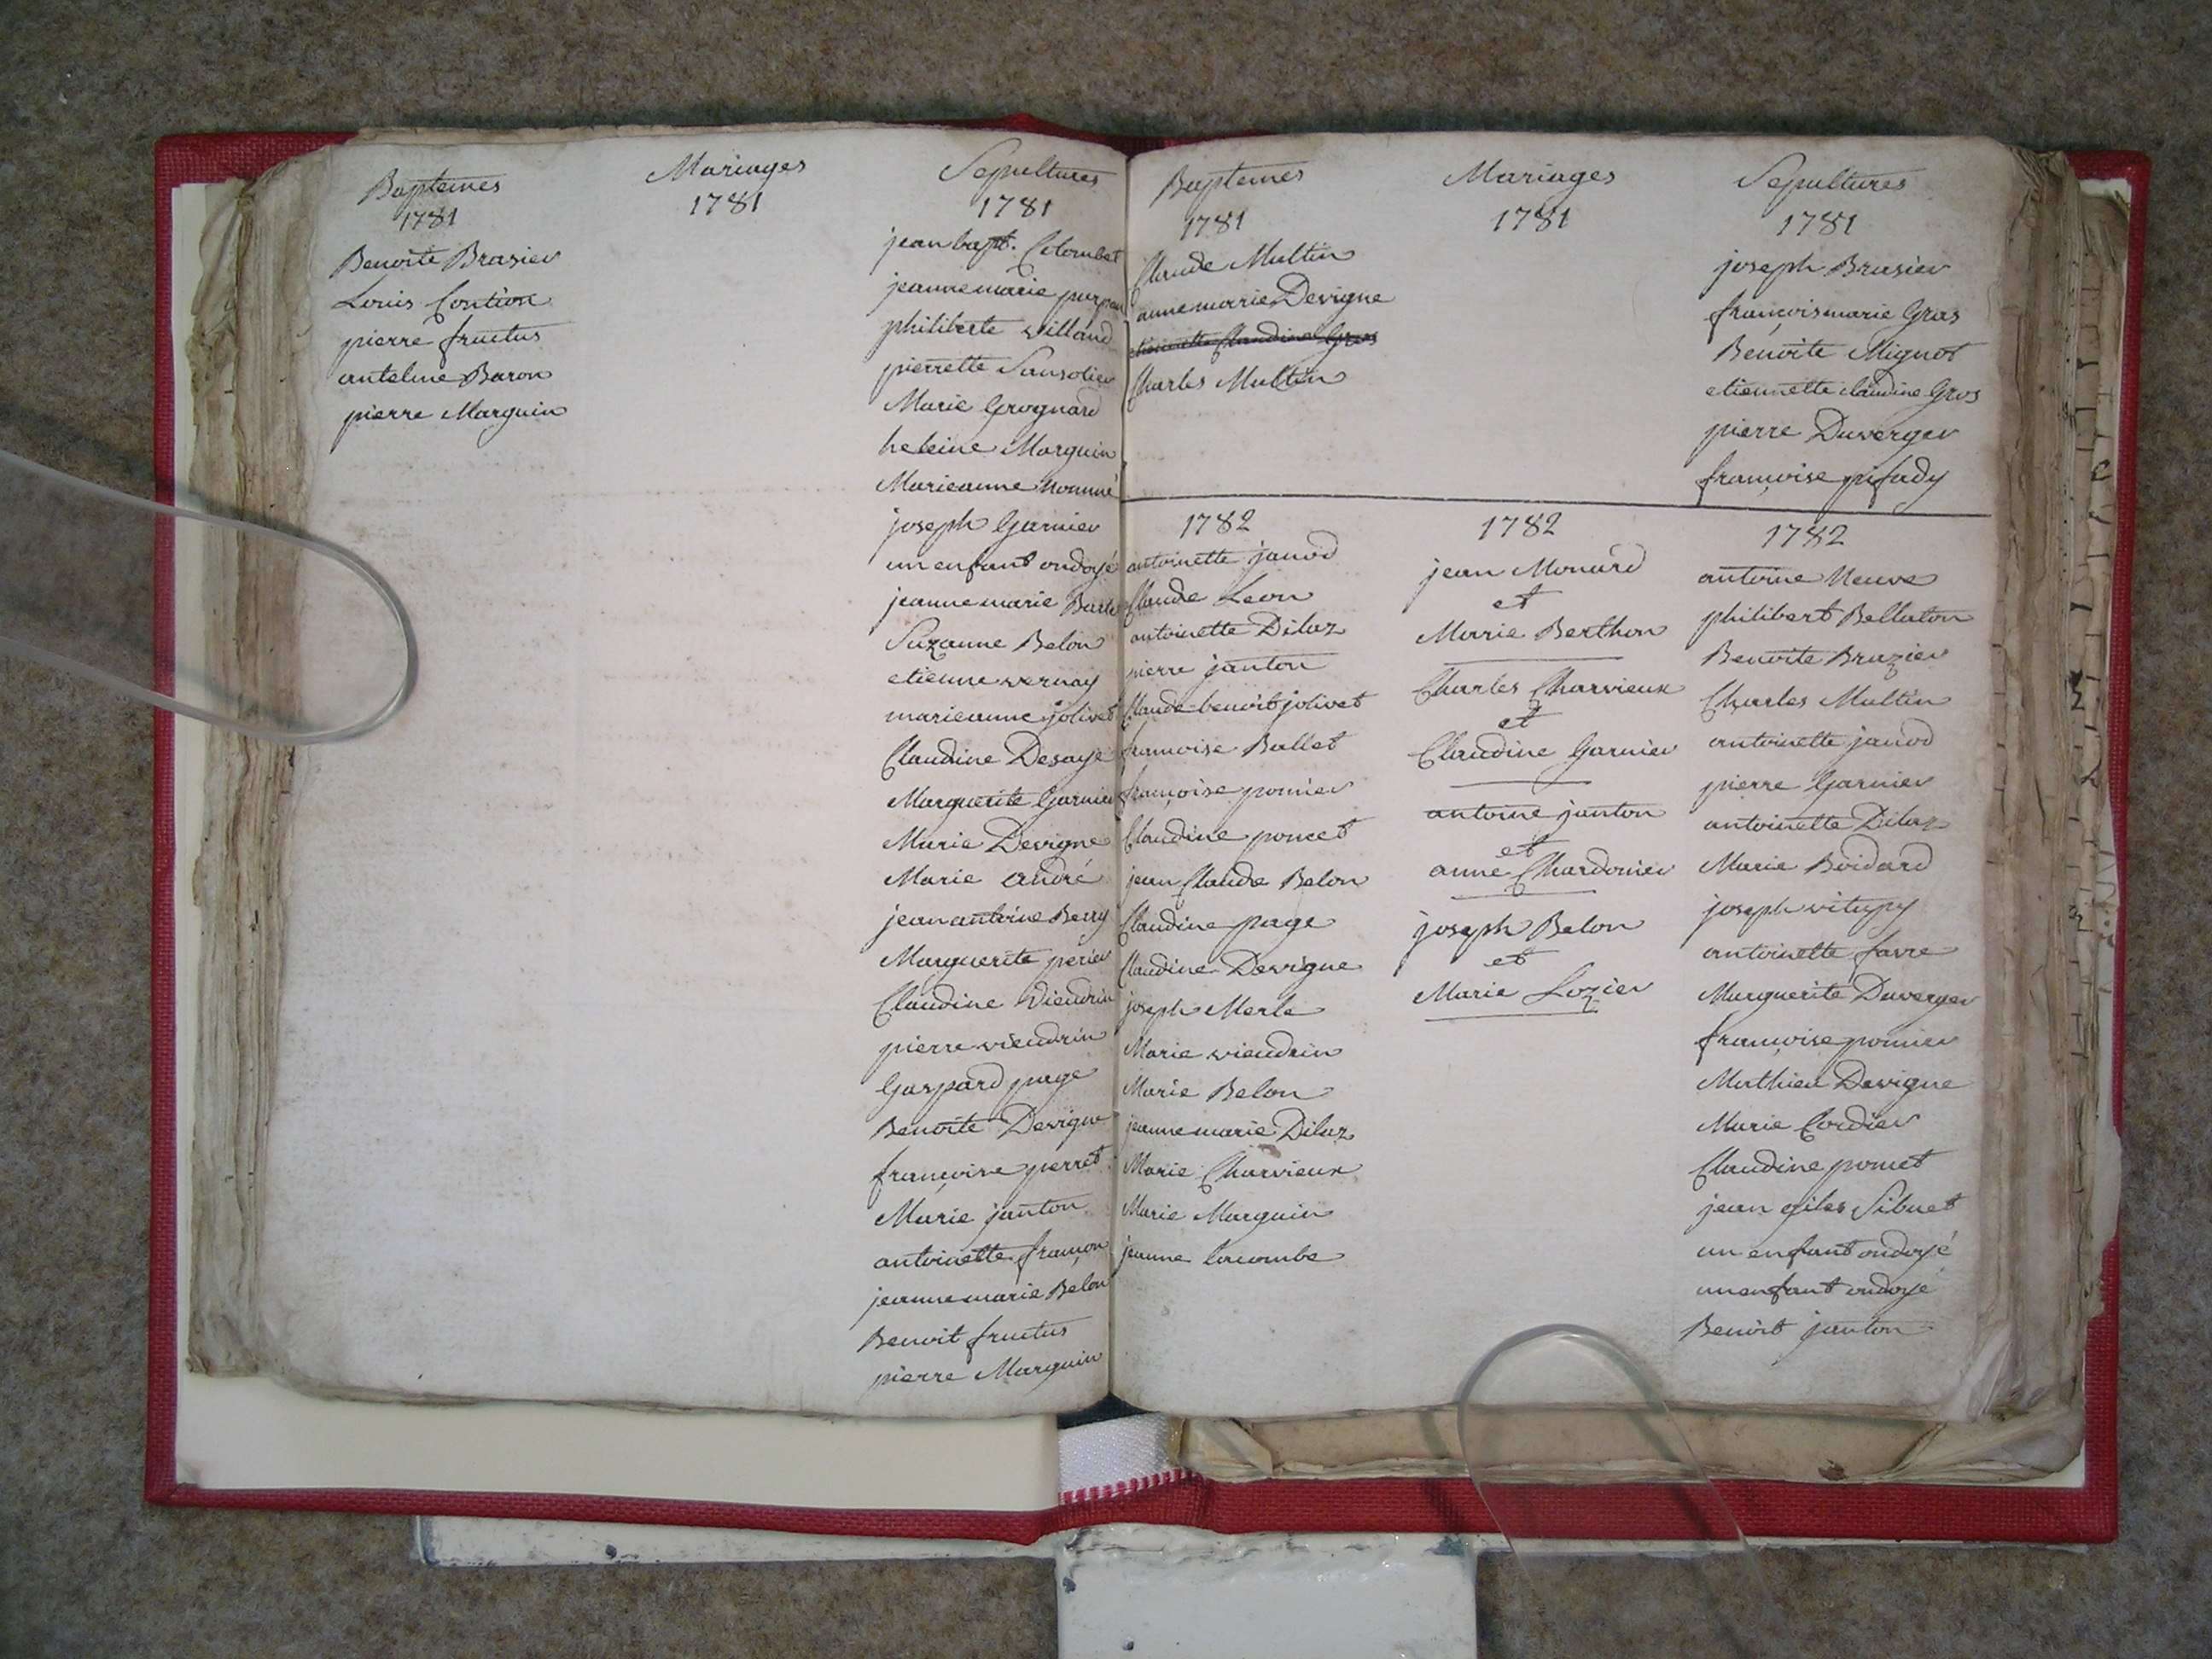 Baptemes
1781
Benoite Brasier
Louis Contion
pierre fructus
antelme Baron
pierre Marguin
Mariages
1781
Sepultures
1781
jean bapt. Colombet
jeanne marie
philiberte villand
pierrette Sansotier
Marie Grognard
heleine Marguin
Marieanne
joseph Garnier
un enfant ondoyé
jeanne marie
Suzanne Belon
etienne vernay
marieanne jolivet
Claudine Desaye
Marguerite Garnier
Marie Devigne
Marie andré
jean antoine Berry
Marguerite perier
Claudine viendrin
pierre viendrin
Gaspard page
Benoite Devigne
françoise perret
Marie janton
antoinette françon
jeanne marie Belon
Benoit fructus
pierre Marguin
Baptemes
1781
Claude Multin
anne marie Devigne
etiennette Claudine Gros
Charles Multin
Mariages
1781
Sepultures
1781
joseph Brasier
francoismarie Gras
Benoite Mignot
etiennette claudine Gros
pierre Duverger
françoise pifady
1782
antoinette janod
Claude Leon
antoinette Dilaz
pierre janton
Claude benoit jolivet
francoise Ballet
françoise pomier
Claudine poncet
jean Claude Belon
Claudine page
Claudine Devigne
joseph Merle
Marie viendrin
Marie Belon
jeanne marie Dilaz
Marie Charvieux
Marie Marguin
jeanne lacombe
1782
jean Monard
et
Marie Berthon
Charles Charvieux
et
Claudine Garnier
antoine janton
et
anne Chardonier
joseph Belon
et
Marie Lozier
1782
antoine Neuve
philibert Bellaton
Benoite Brazier
Charles Multin
antoinette janod
pierre Garnier
antoinette Dilaz
Marie Boidard
joseph vitupy
antoinette favre
Marguerite Duverger
françoise pomier
Mathieu Devigne
Marie Cordier
Claudine poncet
jean giles Sibuet
un enfant ondoyé
un enfant ondoyé
Benoit janton